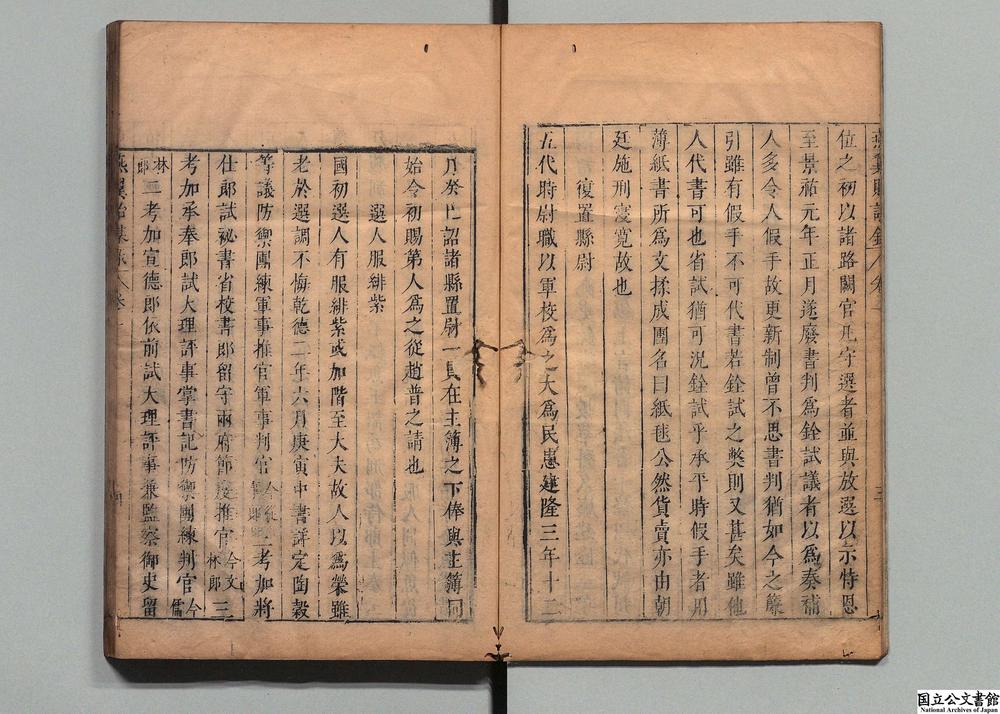 燕翼貽謀錄 卷一 三
位之初以諸路闕官凡守選者並與放選以示特恩
至景祐元年正月遂廢書判爲銓試議者以爲奏補
人多令人假手故更新制曾不思書判猶如今之簾
引雖有假手不可代書若銓試之弊則又甚矣雖他
人代書可也省試猶可況銓試乎承平時假手者用
薄紙書所爲文揉成團名曰紙毬公然貨賣亦由朝
廷施刑寖寛故也
復置縣尉
五代時尉職以軍校爲之大爲民患建隆三年十二
月癸巳詔諸縣置尉一員在主簿之下俸與主簿同
始令初賜第人爲之從趙普之請也
選人服緋紫
國初選人有服緋紫或加階至大夫故人以爲榮雖
老於選調不悔乾德二年六月庚寅中書詳定陶穀
等議防禦團練軍事推官軍事判官今從事郎二考加將
仕郎試祕書省校書郎留守兩府節度推官今文林郎三
考加承奉郎試大理評事掌書記防禦團練判官今儒
林郎二考加宣德郎依前試大理評事兼監察御史留
燕翼貽謀錄 卷一 四
国立公文書館
National Archives of Japan